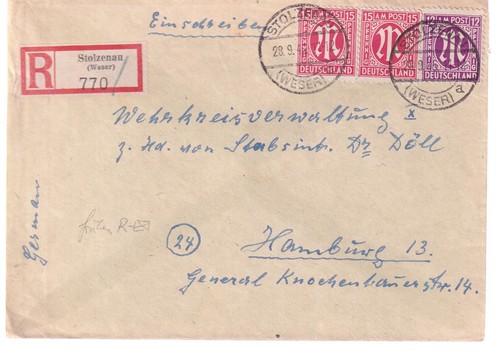 Einschreiben
R Stolzenau
(Weser)
770
15 AM POST 15
DEUTSCHLAND
15 AM POST 15
DEUTSCHLAND
12 AM POST 12
DEUTSCHLAND
STOLZENAU
28.9.
(WESER)
(WESER)
a
Wehrkreisverwaltung X
z. Hd. von Stabsint. Dr Döll
German
früher R-
24
Hamburg 13.
General Knochenhauerstr. 14.